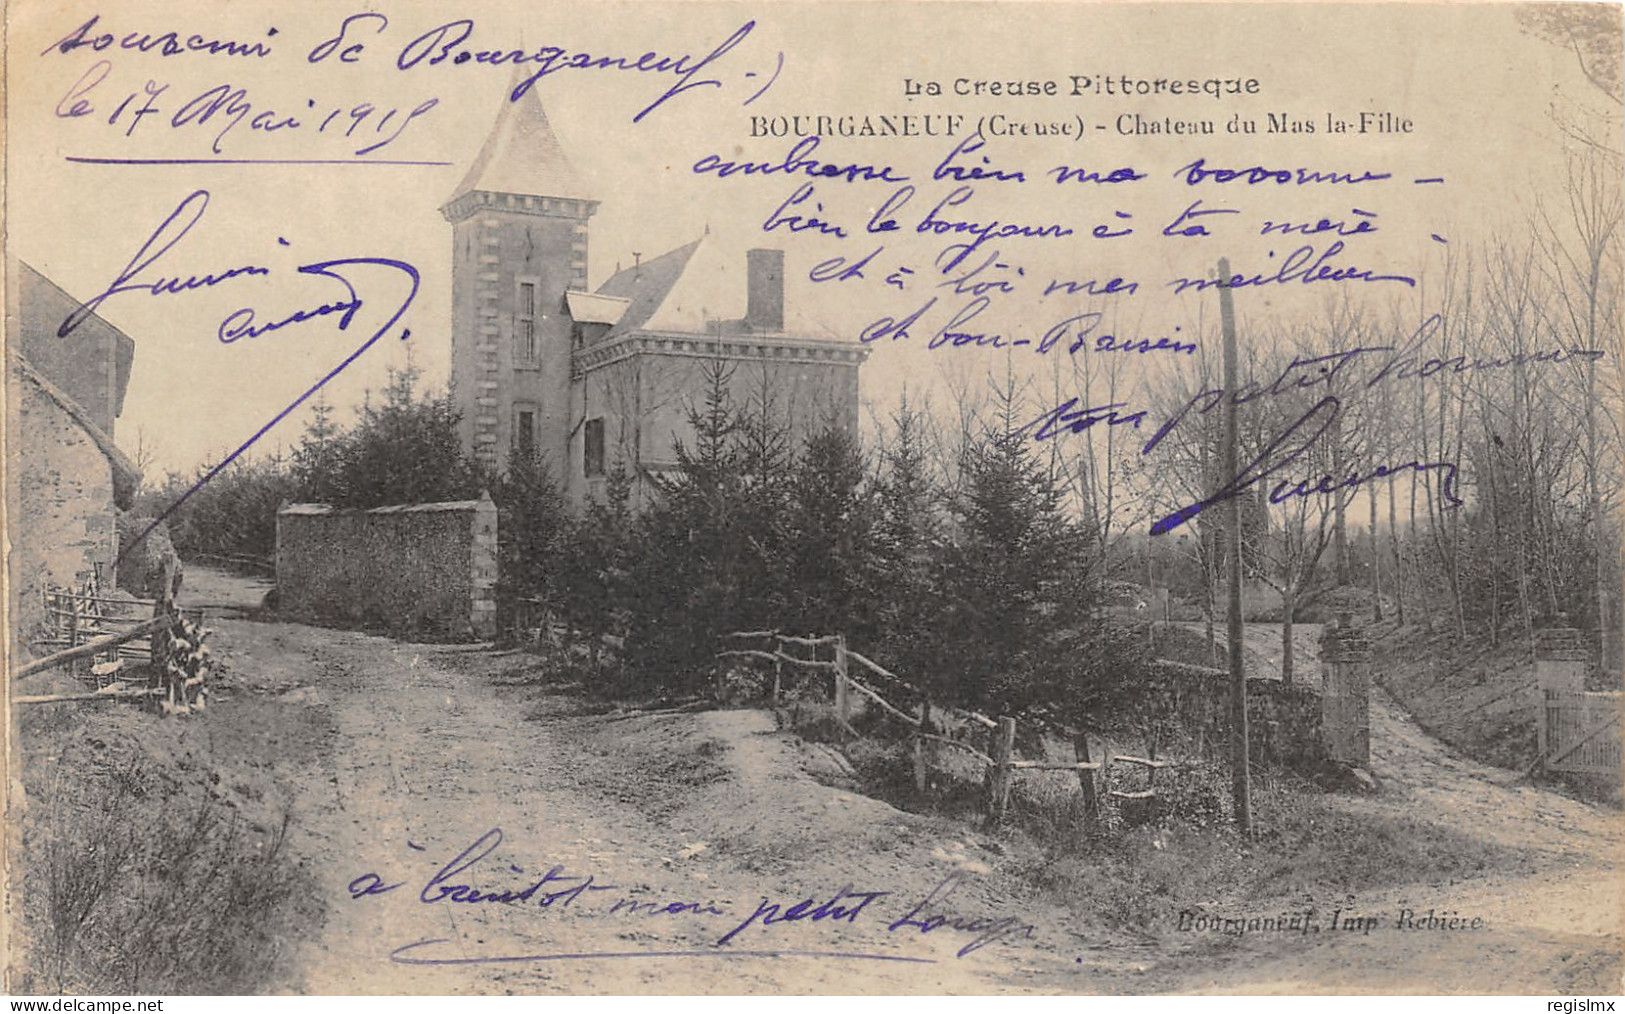 souvenir de Bourganeuf -)
le 17 Mai 1915
La Creuse Pittoresque
BOURGANEUF (Creuse) - Chateau du Mas la-Fille
embrasse bien ma
bien le bonjour à ta mère
et à toi mes meilleur
et bon-Baisers
ton petit homme
à bientôt mon petit Loup
Bourganeuf, Imp Rebière
www.delcampe.net
regislmx